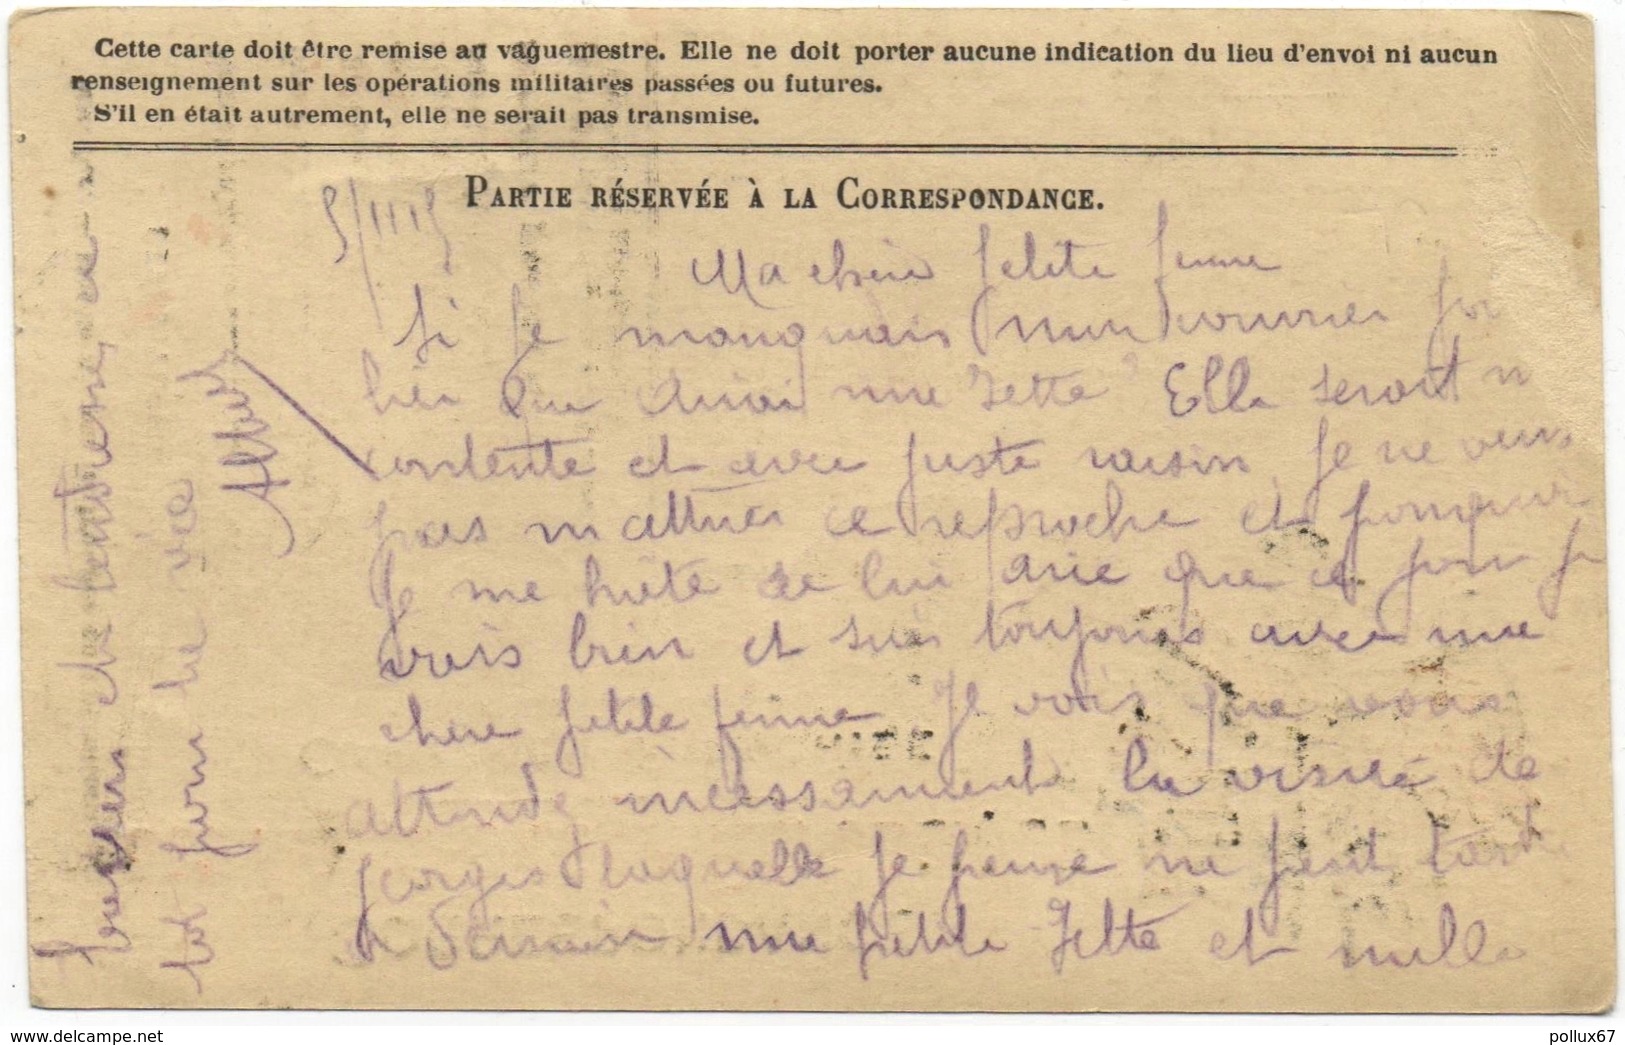 Cette carte doit être remise au vaguemestre. Elle ne doit porter aucune indication du lieu d'envoi ni aucun
renseignement sur les opérations militaires passées ou futures.
S'il en était autrement, elle ne serait pas transmise.
PARTIE RÉSERVÉE À LA CORRESPONDANCE.
5/11 15
Ma chère petite femme
Si je manquais mon courrier
que dirai ma Jette Elle serait
contente et avec juste raison. Je ne veux
pas m'attirer ce reproche et pourquoi
Je me hâte de lui que ce jour
vais bien et suis toujours avec ma
chère petite femme. Je vois que vous
attendez incessamment la visite de
Georges laquelle je pense ne peut tarder
à Demain ma petite Jette et mille
baisers de
tit pour la vie
Albert
pollux67